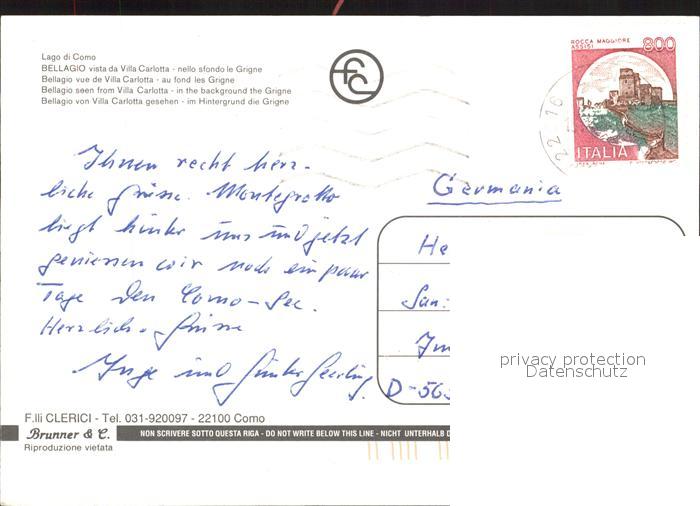 Lago di Como
BELLAGIO vista da Villa Carlotta - nello sfondo le Grigne
Bellagio vue de Villa Carlotta - au fond les Grigne
Bellagio seen from Villa Carlotta - in the background the Grigne
Bellagio von Villa Carlotta gesehen - im Hintergrund die Grigne
ROCCA MAGGIORE
ASSISI
800
ITALIA
22 16
Ihnen recht herz-
liche Grüsse. Montegrotto
liegt hinter uns und jetzt
geniessen wir noch ein paar
Tage den Como-See.
Herzliche Grüsse
Inge und Günter
Germania
He
San:
Im
D-565
privacy protection
Datenschutz
F.lli CLERICI - Tel. 031-920097 - 22100 Como
Brunner & C.
NON SCRIVERE SOTTO QUESTA RIGA - DO NOT WRITE BELOW THIS LINE - NICHT UNTERHALB D
Riproduzione vietata